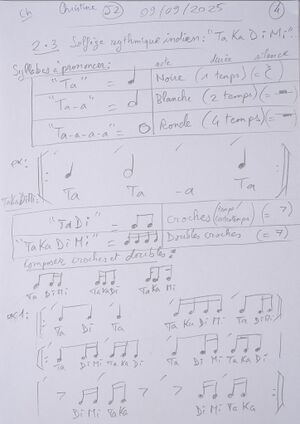 Ch Christine J2 09/09/2025 4
2.3 Solfège rythmique indien: "Ta Ka Di Mi"
Syllabes à prononcer: note durée silence
"Ta" = Noire (1 temps) =
"Ta-a" = Blanche (2 temps) =
"Ta-a-a-a" = Ronde (4 temps) =
ex:
Ta Ta -a Ta
TaKaDiMi:
"TaDi" = croches (= 7)
"TaKa Di Mi" = Doubles croches (= 7)
Composer croches et doubles:
Ta Di Mi TaKaDi TaKa Mi
ex1: Ta Di Ta Ta Ka Di Mi Ta Di Mi
Ta Di Mi Ta Ka Di Ta Di Mi Ta Ka Di
Di Mi TaKa Di Mi Ta Ka Di